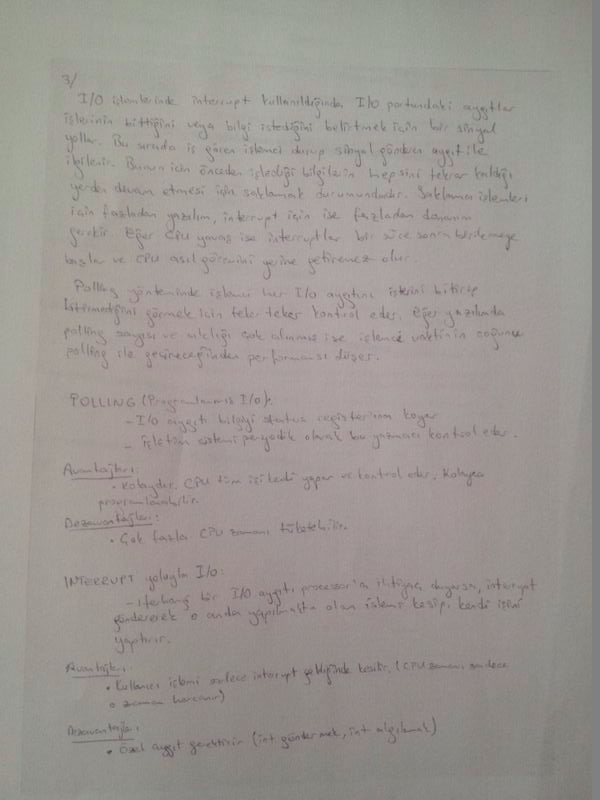 3/
I/O işlemlerinde interrupt kullanıldığında I/O portundaki aygıtlar
işlerinin bittiğini veya bilgi istediğini belirtmek için bir sinyal
yollar. Bu sırada iş gören işlemci durup sinyal gönderen aygıt ile
ilgilenir. Bunun için önceden işlediği bilgilerin hepsini tekrar kaldığı
yerden devam etmesi için saklamak durumundadır. Saklama işlemleri
için fazladan yazılım, interrupt için ise fazladan donanım
gerekir. Eğer CPU yavaş ise interruptlar bir süre sonra birikmeye
başlar ve CPU asıl görevini yerine getiremez olur.
Polling yönteminde işlemci her I/O aygıtını işlerini bitirip
bitirmediğini görmek için teker teker kontrol eder. Eğer yazılımda
polling sayısı ve sıklığı çok alınmış ise işlemci vaktinin çoğunu
polling ile geçireceğinden performansı düşer.
POLLING (Programlanmış I/O):
- I/O aygıtı bilgiyi status registerına koyar
- İşletim sistemi periyodik olarak bu yazmacı kontrol eder.
Avantajları:
• Kolaydır. CPU tüm işi kendi yapar ve kontrol eder. Kolayca
programlanabilir.
Dezavantajları:
• Çok fazla CPU zamanı tüketebilir.
INTERRUPT yoluyla I/O:
- Herhangi bir I/O aygıtı processor'a ihtiyaç duyarsa, interrupt
göndererek o anda yapılmakta olan işlemi kesip, kendi işini
yaptırır.
• Kullanıcı işlemi sadece interrupt geldiğinde kesilir. (CPU zamanı sadece
o zaman harcanır)
• Özel aygıt gerektirir (int göndermek, int algılamak)